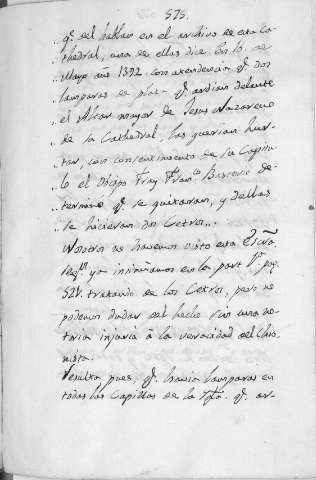 575.
,, qe. del hablan en el archivo de esta Ca-
,, thedral, una de ellas dice En 16 de
,, Mayo año 1392. con atendencia qe. dos
,, lamparas de plata qe. ardian delante
,, el Altar mayor de Jesus Nazareno
,, de su Cathedral, las querian hur-
,, tar, con consentimiento de su Capitu-
,, lo el Obispo Fray Franco.
,, termino qe. se quitaran, y dellas
,, se hicieran dos Cetros...
Nosotros no havemos visto esta Escra.
ya insinuamos en la part. 1a. pag.
521. tratando de los Cetros, pero no
podemos dudar del hecho sin una no-
toria injuria à la veracidad del Chro-
nista.
Resulta pues, qe. havia lamparas en
todas las Capillas de la Iga. qe. ar-